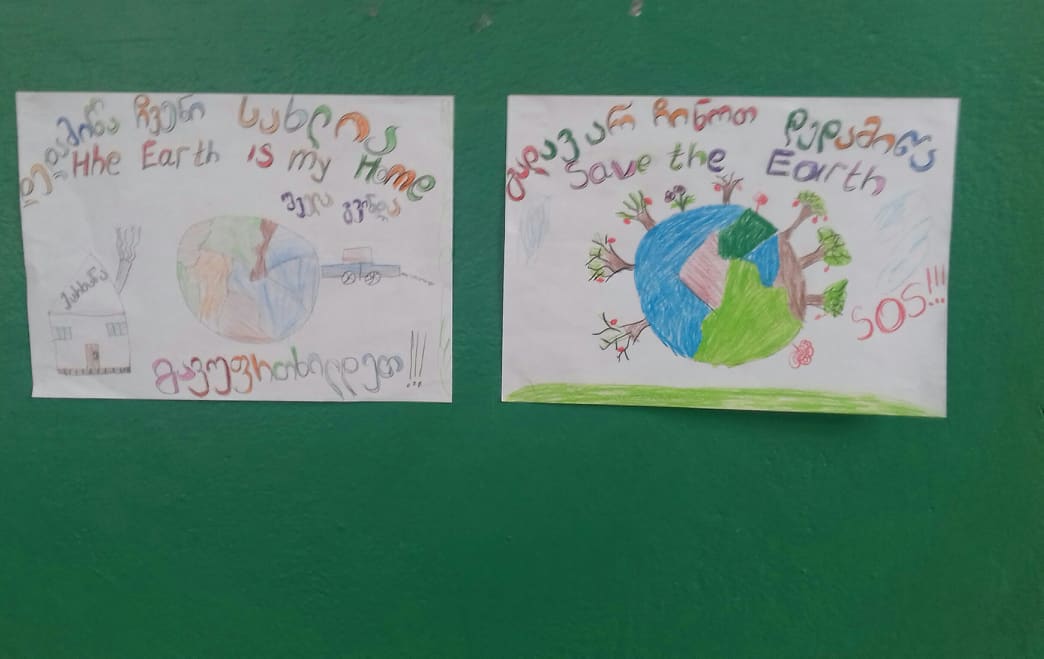 დედამიწა ჩვენი სახლია
Hhe Earth is my Home
გვინდა
ქარხანა
გავუფრთხილდეთ!!!
გადავარჩინოთ დედამიწა
Save the Earth
SOS!!!